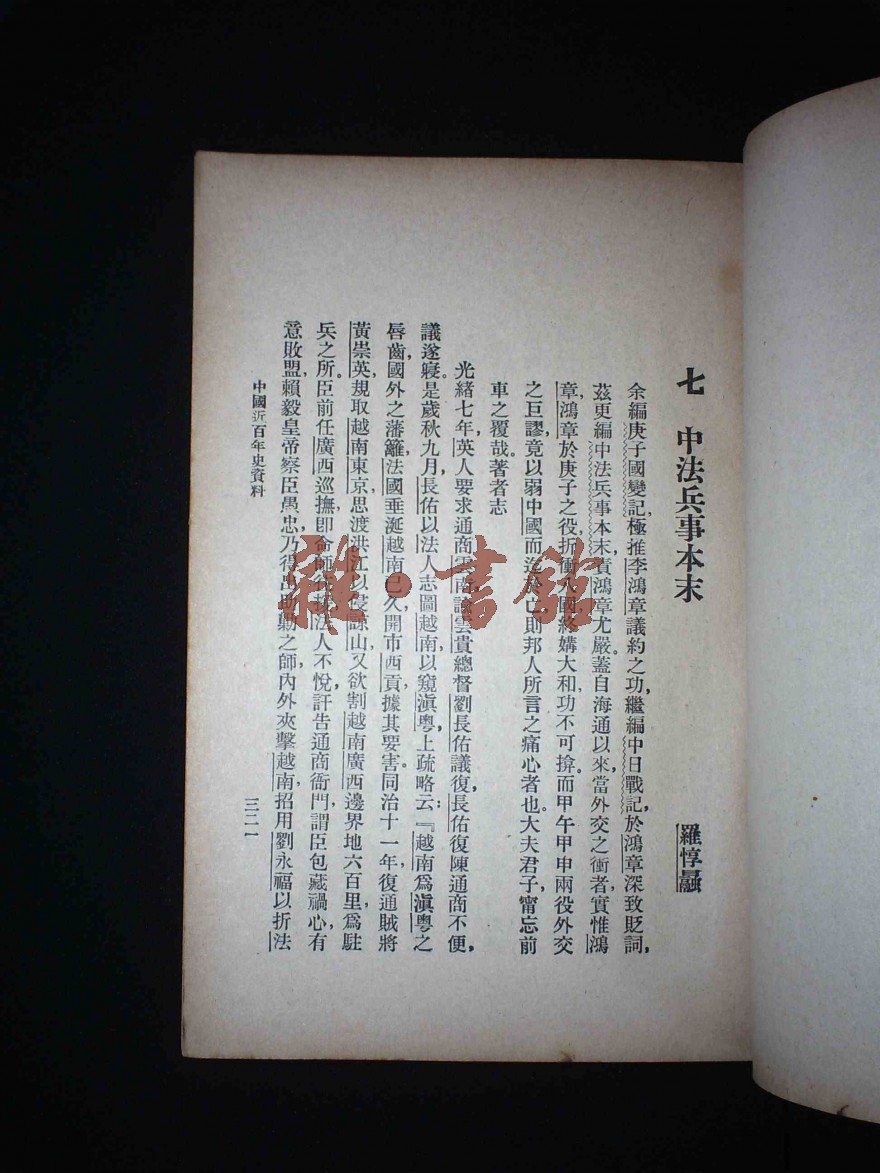 七　中法兵事本末
羅惇曧
余編庚子國變記，極推李鴻章議約之功，繼編中日戰記，於鴻章深致貶詞，
茲更編中法兵事本末，責鴻章尤嚴。蓋自海通以來，當外交之衝者，實惟鴻
章。鴻章於庚子之役，折衝八國，終媾大和，功不可揜。而甲午甲申兩役，外交
之巨謬，竟以弱中國而迄於亡，則邦人所言之痛心者也。大夫君子，甯忘前
車之覆哉。著者志
光緒七年，英人要求通商雲南，諭雲貴總督劉長佑議復，長佑復陳通商不便，
議遂寢。是歲秋九月，長佑以法人志圖越南，以窺滇粵，上疏略云：『越南爲滇粵之
脣齒，國外之藩籬，法國垂涎越南已久，開市西貢，據其要害。同治十一年，復通賊將
黃崇英，規取越南東京，思渡洪江以侵諒山，又欲割越南廣西邊界地六百里，爲駐
兵之所。臣前任廣西巡撫，卽命師往援，法人不悅，訐告通商衙門，謂臣包藏禍心，有
意敗盟，賴毅皇帝察臣愚忠，乃得出助勦之師，內外夾擊，越南招用劉永福，以折法
中國近百年史資料
三二一
雜·書館